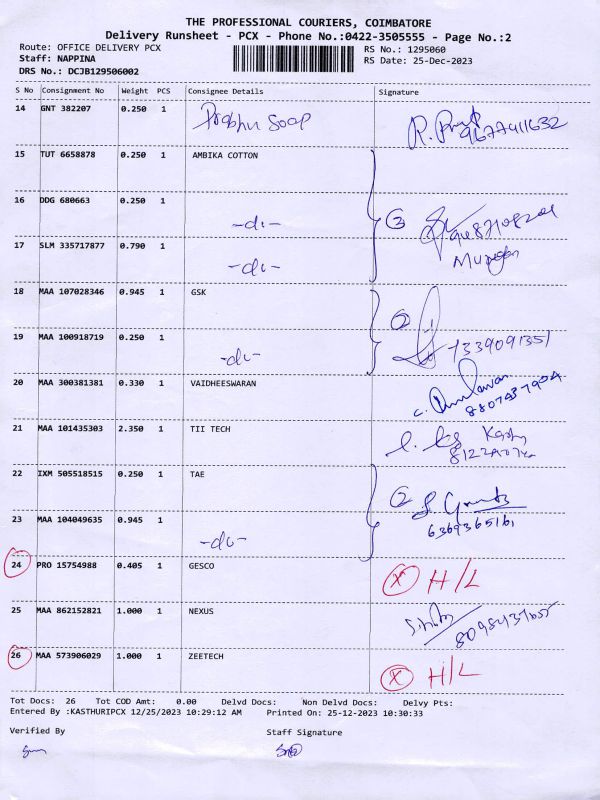 THE PROFESSIONAL COURIERS, COIMBATORE
Delivery Runsheet - PCX - Phone No.:0422-3505555 - Page No.:2
Route: OFFICE DELIVERY PCX RS No.: 1295060
Staff: NAPPINA RS Date: 25-Dec-2023
DRS No.: DCJB129506002
S No Consignment No Weight PCS Consignee Details Signature
14 GNT 382207 0.250 1 Prabhu Soap R. 9677411632
15 TUT 6658878 0.250 1 AMBIKA COTTON
16 DDG 680663 0.250 1 -do- 3
17 SLM 335717877 0.790 1 -do- Murugan
18 MAA 107028346 0.945 1 GSK 2
19 MAA 100918719 0.250 1 -do- 7339091351
20 MAA 300381381 0.330 1 VAIDHEESWARAN C. 8807437904
21 MAA 101435303 2.350 1 TII TECH
22 IXM 505518515 0.250 1 TAE 2
23 MAA 104049635 0.945 1 -do- 6369365161
24 PRO 15754988 0.405 1 GESCO X H/L
25 MAA 862152821 1.000 1 NEXUS
26 MAA 573906029 1.000 1 ZEETECH X H/L
Tot Docs: 26 Tot COD Amt: 0.00 Delvd Docs: Non Delvd Docs: Delvy Pts:
Entered By :KASTHURIPCX 12/25/2023 10:29:12 AM Printed On: 25-12-2023 10:30:33
Verified By Staff Signature